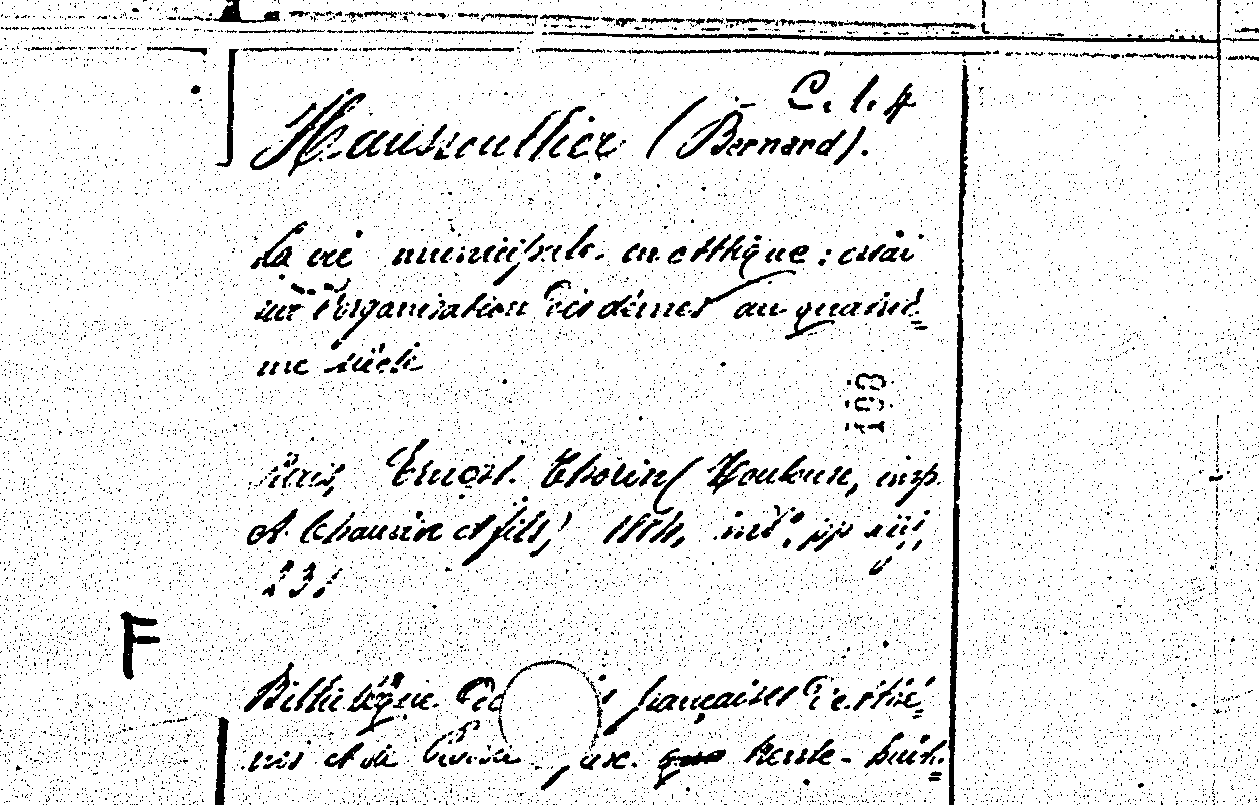 C. 1. 4
Haussoullier (Bernard).
La vie municipale en Attique : essai
sur l'organisation des dèmes au quatriè=
me siècle
193
Paris, Ernest Thorin (Toulouse, imp.
A. Chauvin et fils) 1884, in 8°, pp xij,
231
F
Bibliothèque des françaises d'Athè=
nes et de fasc. trente-huit=